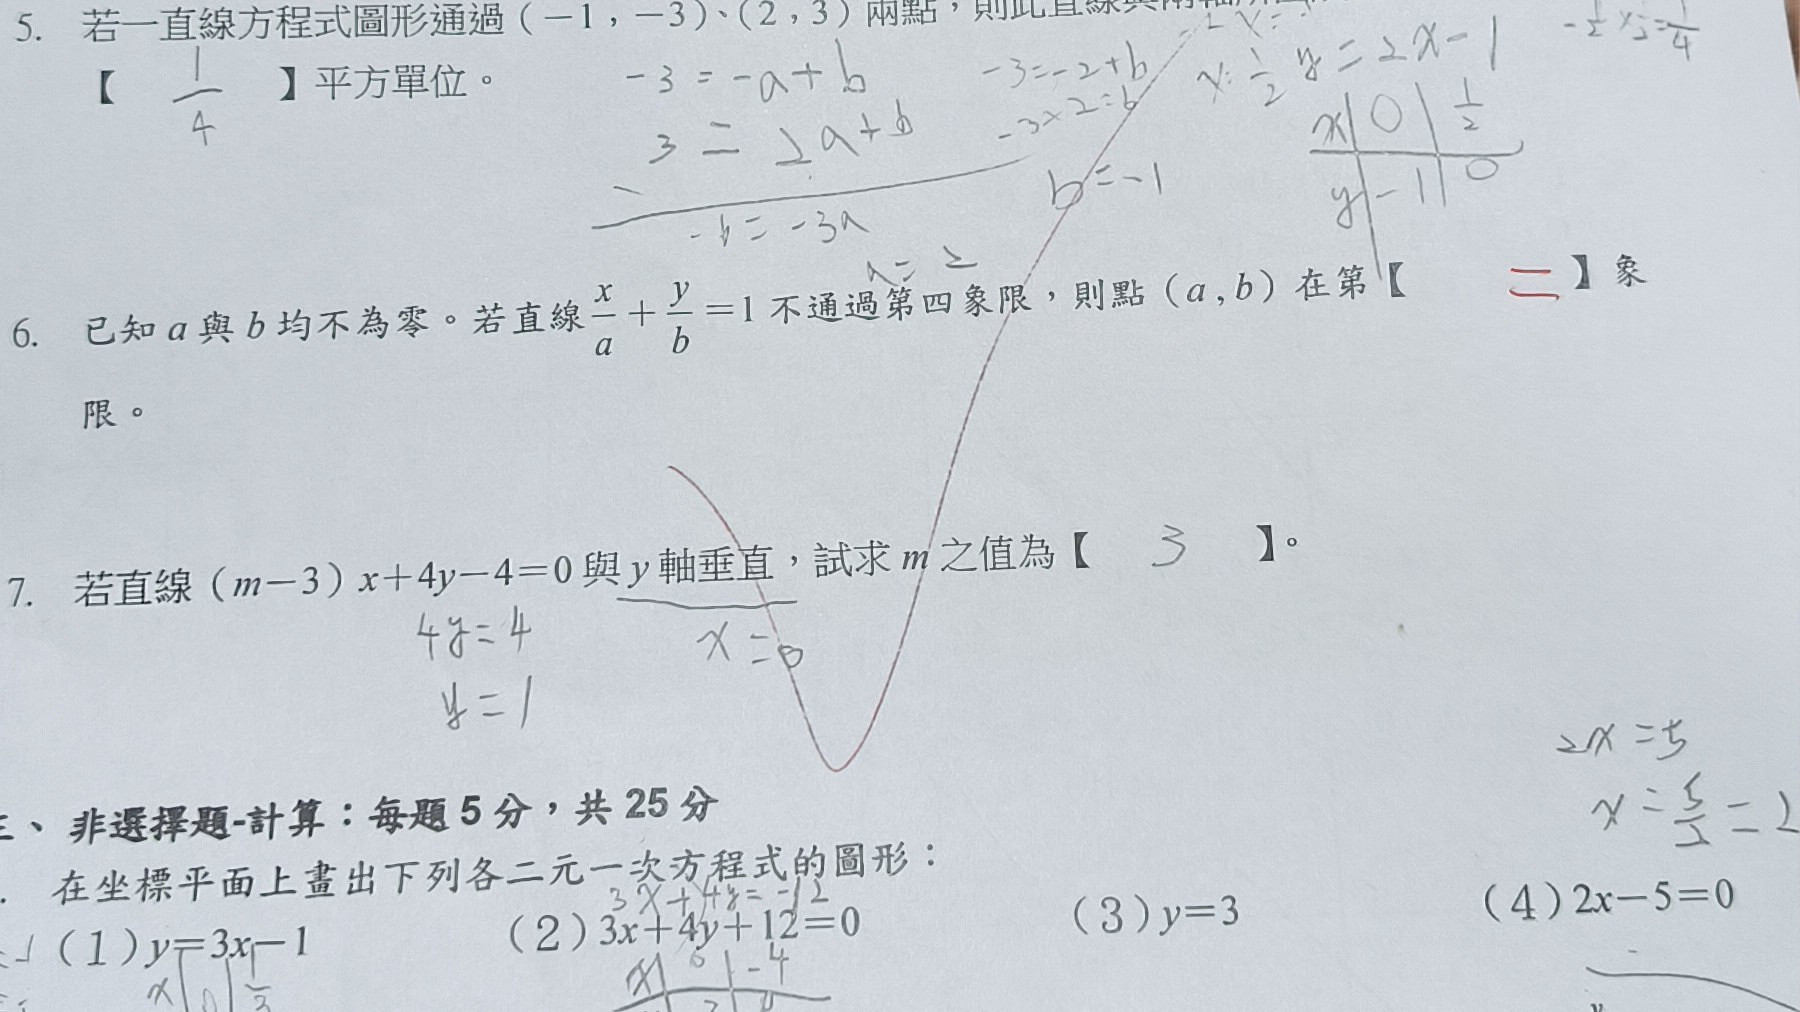 5. 若一直線方程式圖形通過(-1,-3)、(2,3)兩點,則此直線與兩軸所
【 1/4 】平方單位。
-3 = -a+b
3 = 2a+b
-6 = -3a
a = 2
-3=-2+b
-3+2=b
b=-1
x=1/2
y=2x-1
x 0 1/2
y -1 0
6. 已知 a 與 b 均不為零。若直線 x/a + y/b =1 不通過第四象限,則點(a,b)在第【 二 】象
限。
7. 若直線(m-3)x+4y-4=0 與 y 軸垂直,試求 m 之值為【 3 】。
4y=4
x=0
y=1
2x=5
x=5/2=2
三、非選擇題-計算:每題 5 分,共 25 分
在坐標平面上畫出下列各二元一次方程式的圖形:
3x+4y=-12
(1)y=3x-1 (2)3x+4y+12=0 (3)y=3 (4)2x-5=0
x 0 1/3
x 0 -4